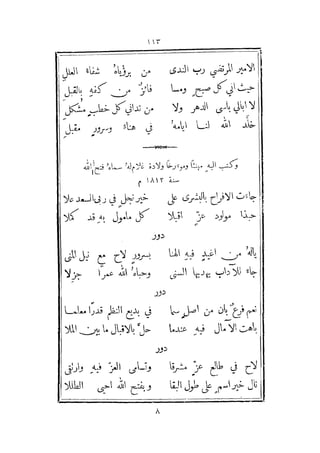 ١١٣
الامير المرتضي رب الندى من برؤياه شفاء العلل
حيث اني كل صبح ومسا فائزٌ من كفهِ بالقبل
لا ابالي باسى الدهر ولا من تداني كل خطب مشكل
خلد الله لنا ايامهُ في هناء وسرور مقبل
وكتب اليهِ مهنئًا ومورخًا ولادة غلام لهُ سماهُ فتح الله
سنة ١٨١٢ م
جاءت الافراح بالبشرى على خير نجل في ربى السعد علا
حبذا مولود عزّ اقبلا كل مامول بهِ قد كملا
دور
يالهُ من اغيد فيهِ الهنا بسرور لاح مع نيل المنى
جاء للآداب يهديها السنى وحباهُ الله عمرًا جزلا
دور
نعم فرعٌ بان من اصل سما في بديع النظم قدرًا معلما
باهت الآمال فيهِ عندما حلّ بالاقبال ما بين الملا
دور
لاح في طالع عزّ مشرقا وتسامى العز فيهِ وارتقى
نال خير اسم على طول البقا وبفتح الله احيى الطللا
٨